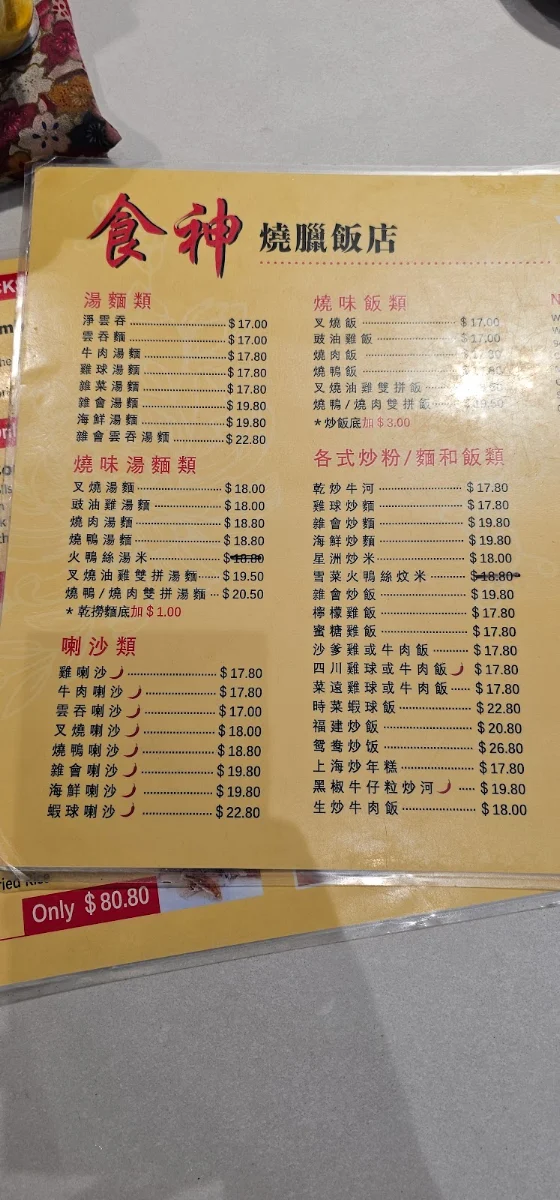 食神 燒臘飯店
湯麵類
淨雲吞 $17.00
雲吞麵 $17.00
牛肉湯麵 $17.80
雞球湯麵 $17.80
雜菜湯麵 $17.80
雜會湯麵 $19.80
海鮮湯麵 $19.80
雜會雲吞湯麵 $22.80
燒味湯麵類
叉燒湯麵 $18.00
豉油雞湯麵 $18.00
燒肉湯麵 $18.80
燒鴨湯麵 $18.80
火鴨絲湯米 $18.80
叉燒油雞雙拼湯麵 $19.50
燒鴨/燒肉雙拼湯麵 $20.50
* 乾撈麵底加 $1.00
喇沙類
雞喇沙 $17.80
牛肉喇沙 $17.80
雲吞喇沙 $17.00
叉燒喇沙 $18.00
燒鴨喇沙 $18.80
雜會喇沙 $19.80
海鮮喇沙 $19.80
蝦球喇沙 $22.80
燒味飯類
叉燒飯 $17.00
豉油雞飯 $17.00
燒肉飯
燒鴨飯
叉燒油雞雙拼飯
燒鴨/燒肉雙拼飯
* 炒飯底加 $3.00
各式炒粉/麵和飯類
乾炒牛河 $17.80
雞球炒麵 $17.80
雜會炒麵 $19.80
海鮮炒麵 $19.80
星洲炒米 $18.00
雪菜火鴨絲炆米 $18.80
雜會炒飯 $19.80
檸檬雞飯 $17.80
蜜糖雞飯 $17.80
沙爹雞或牛肉飯 $17.80
四川雞球或牛肉飯 $17.80
菜遠雞球或牛肉飯 $17.80
時菜蝦球飯 $22.80
福建炒飯 $20.80
鸳鸯炒饭 $26.80
上海炒年糕 $17.80
黑椒牛仔粒炒河 $19.80
生炒牛肉飯 $18.00
Only $80.80